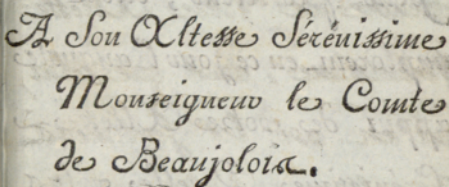 A Son Altesse Sérénissime
Monseigneur le Comte
de Beaujolois.